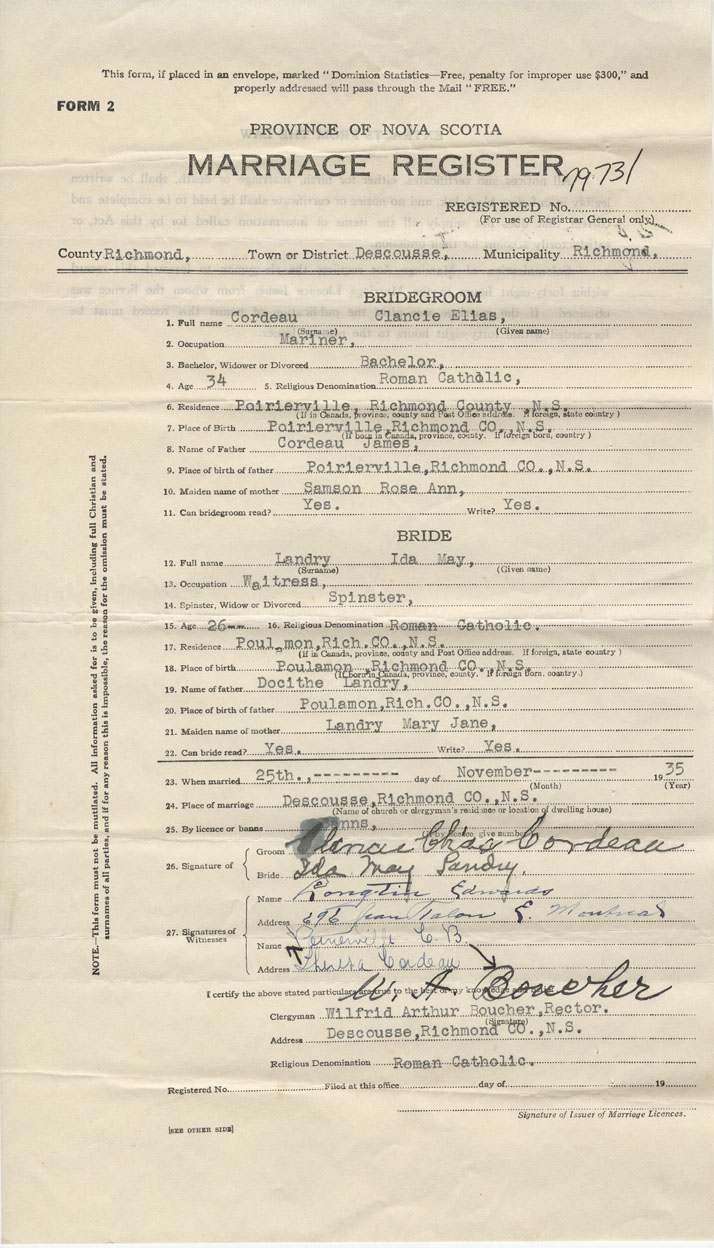 This form, if placed in an envelope, marked "Dominion Statistics—Free, penalty for improper use $300," and
properly addressed will pass through the Mail "FREE."
FORM 2
PROVINCE OF NOVA SCOTIA
MARRIAGE REGISTER
REGISTERED No.
(For use of Registrar General only)
County Richmond, Town or District Descousse, Municipality Richmond,
BRIDEGROOM
1. Full name Cordeau Clancie Elias,
(Surname) (Given name)
2. Occupation Mariner,
3. Bachelor, Widower or Divorced Bachelor,
4. Age 34 5. Religious Denomination Roman Catholic,
6. Residence Poirierville, Richmond County ,N.S.
(If in Canada, province, county and Post Office address. If foreign, state country )
7. Place of Birth Poirierville,Richmond CO.,N.S.
(If born in Canada, province, county. If foreign born, country )
8. Name of Father Cordeau James,
9. Place of birth of father Poirierville,Richmond CO.,N.S.
10. Maiden name of mother Samson Rose Ann,
11. Can bridegroom read? Yes. Write? Yes.
BRIDE
12. Full name Landry Ida May,
(Surname) (Given name)
13. Occupation Waitress,
14. Spinster, Widow or Divorced Spinster,
15. Age 26 16. Religious Denomination Roman Catholic.
17. Residence Poul mon,Rich.CO.,N.S.
(If in Canada, province, county and Post Office address. If foreign, state country )
18. Place of birth Poulamon ,Richmond CO.,N.S.
(If born in Canada, province, county. If foreign born, country.)
19. Name of father Docithe Landry,
20. Place of birth of father Poulamon,Rich.CO.,N.S.
21. Maiden name of mother Landry Mary Jane,
22. Can bride read? Yes. Write? Yes.
23. When married 25th.,--------- day of November--------- 1935
(Month) (Year)
24. Place of marriage Descousse,Richmond CO.,N.S.
(Name of church or clergyman's residence or location of dwelling house)
25. By licence or banns
26. Signature of
Groom Chas Cordeau
Bride Ida May Landry.
27. Signatures of Witnesses
Name Longtin Edwards
Address 696 Jean Talon E. Montreal
Name C.B
Address Theresa Cordeau
I certify the above stated particulars are true to the best of my knowledge
W. A Boucher
Clergyman Wilfrid Arthur Boucher,Rector.
(Signature)
Address Descousse,Richmond CO.,N.S.
Religious Denomination Roman Catholic.
Registered No. Filed at this office day of 19
Signature of Issuer of Marriage Licences.
[SEE OTHER SIDE]
NOTE.—This form must not be mutilated. All information asked for is to be given, including full Christian and
surnames of all parties, and if for any reason this is impossible, the reason for the omission must be stated.